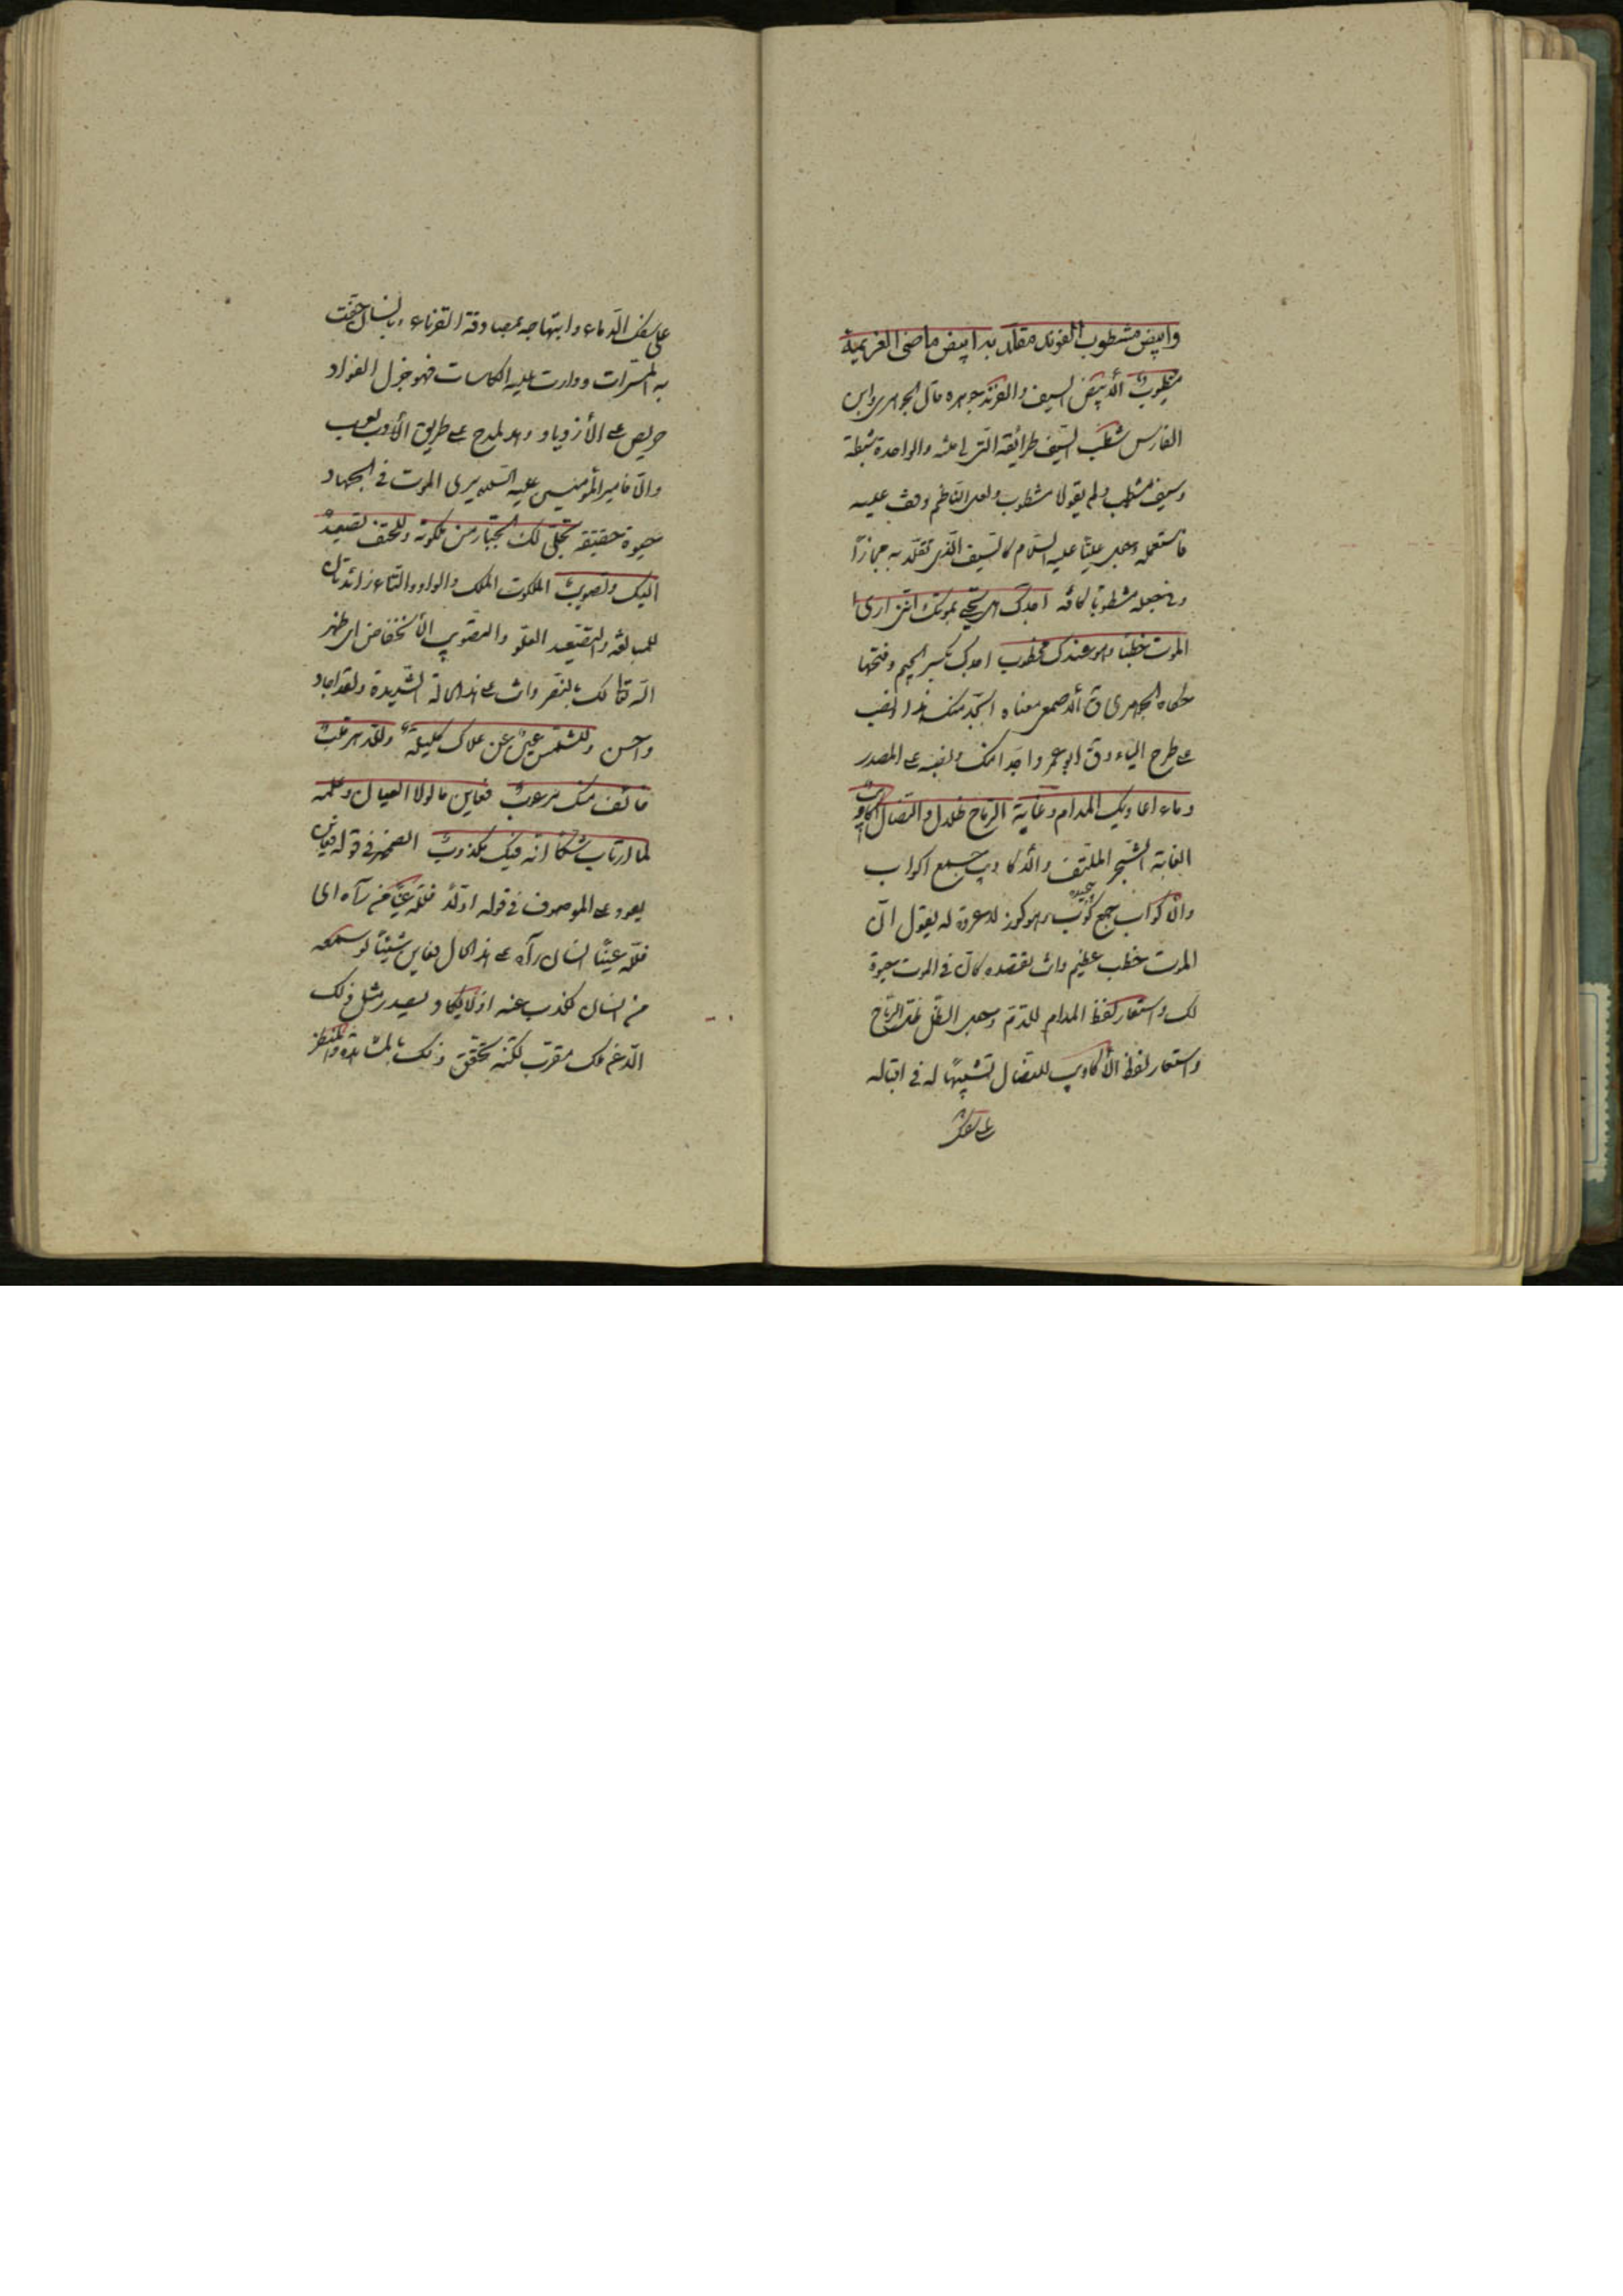 وابيض مشطوب الفرند مقلد به ابيض ماضى العزيمة
مشطوب الأبيض السيف والفرند جوهره قال الجوهرى وابن
الفارس شطب السيف طرائقه التى فى متنه والواحدة شطبة
وسيف مشطب ولم يقولا مشطوب ولعل الناظم وقف عليه
فاستعمله وجعل عليّا عليه السّلام كالسّيف الّذى تقلّد به مجازًا
اجدك هل تحيى بموتك انّنى ارى
الموت خطبًا وهو عندك مخطوب اجدك بكسر الجيم وفتحها
حكاه الجوهرى ق الأصمعى معناه ابجد منك هذا ونصب
على طرح الباء وق ابو عمرو اجدا منك ونصبه على المصدر
دماء اعاديك المدام وغابة الرماح ظلال والنصال اكاويب
الغابة الشجر الملتف والأكاويب جمع اكواب
والأكواب جمع كوب وهو كوز لا عروة له يقول انّ
الموت خطب عظيم وانت تقصده كانّ فى الموت حيوة
لك واستعار لفظ المدام للدّم وجعل الظل الرّماح
واستعار لفظ الأكاويب للنصال تشبيهًا له فى اقباله
على سفك
على سفك الدّماء وابتهاجه بمصادفة القرناء بانسان حفّت
به المسرّات ودارت عليه الكاسات فهو جزل الفؤاد
حريص على الأزدياد وهو المدح على طريق الأدب
والّا فامير المؤمنين عليه السلم يرى الموت فى الجهاد
حيوة حقيقة تجلّى لك الجبّار من ملكوته وللحتف تصعيد
اليك وتصويب الملكوت الملك والواو والتاء زائدتان
للمبالغة والتصعيد العلوّ والتصويب الأنخفاض اى ظهر
اللّه تعالى لك بالنصر وانت على هذه الحالة الشّديدة ولقد اجاد
واحسن وللشمس عين عن علاك كليلة وللدهر قلب
خائف منك مرعوب فعاين ما لولا العيان وعلمه
لما ارتاب شكًّا انه فيك مكذوب الضمير فى قوله فعاين
يعود على الموصوف فى قوله اوّلًا فللّه عينًا من رآه اى
فللّه عينًا انسان رآه على هذا الحال فعاين شيئًا لو سمعه
من انسان لكذب عنه اذ لا يكاد يصدر مثل ذلك
لكنّه تحقّق ذلك بالمشاهدة والنظر